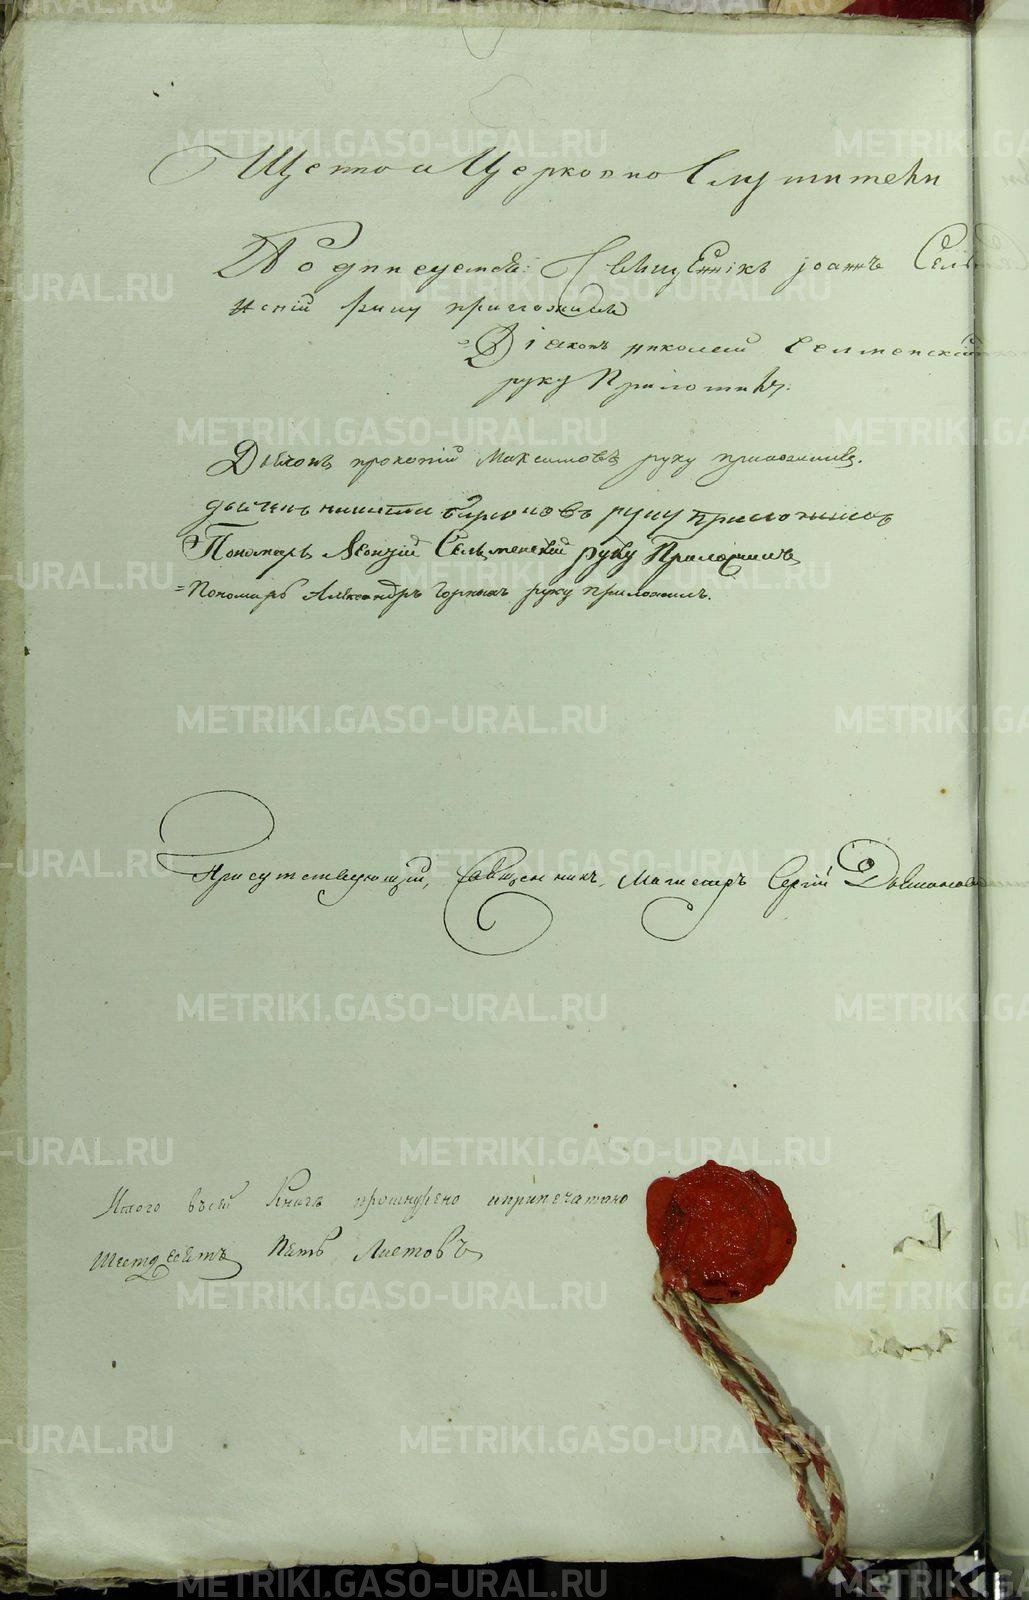 Щенно и Церковно Служители
Подписуемся: Священникъ Іоаннъ Сель
менскій руку приложилъ
Діаконъ Николай Селменскій
руку Приложилъ:
Дьяконъ прокопій Максимовъ руку приложилъ.
дьячекъ руку приложилъ
Пономарь Леонтій Сельменскій руку Приложилъ
Пономарь Александръ Горныхъ руку приложилъ.
Присутствующій, Священникъ, Магистръ Сергій
Итого всѣй Книгѣ прошнурено иприпечатано
Шестдесятъ Пять Листовъ
METRIKI.GASO-URAL.RU